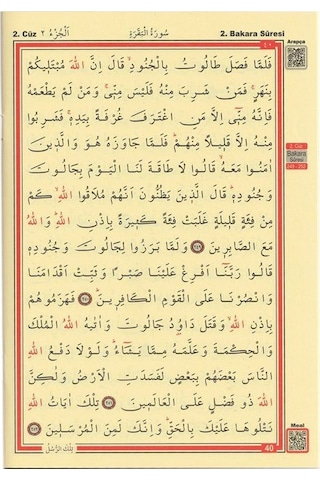 2. Cüz ٢ اَلْجُزْءُ
سُورَةُ الْبَقَرَةِ
2. Bakara Sûresi
٤٠
Arapça
فَلَمَّا فَصَلَ طَالُوتُ بِالْجُنُودِ قَالَ اِنَّ اللّٰهَ مُبْتَل۪يكُمْ
بِنَهَرٍۚ فَمَنْ شَرِبَ مِنْهُ فَلَيْسَ مِنّ۪يۚ وَمَنْ لَمْ يَطْعَمْهُ
فَاِنَّهُ مِنّ۪ٓي اِلَّا مَنِ اغْتَرَفَ غُرْفَةً بِيَدِه۪ۚ فَشَرِبُوا
مِنْهُ اِلَّا قَل۪يلًا مِنْهُمْۜ فَلَمَّا جَاوَزَهُ هُوَ وَالَّذ۪ينَ
اٰمَنُوا مَعَهُۙ قَالُوا لَا طَاقَةَ لَنَا الْيَوْمَ بِجَالُوتَ
وَجُنُودِه۪ۜ قَالَ الَّذ۪ينَ يَظُنُّونَ اَنَّهُمْ مُلَاقُوا اللّٰهِۙ كَمْ
مِنْ فِئَةٍ قَل۪يلَةٍ غَلَبَتْ فِئَةً كَث۪يرَةً بِاِذْنِ اللّٰهِۜ وَاللّٰهُ
مَعَ الصَّابِر۪ينَ ﴿٢٤٩﴾ وَلَمَّا بَرَزُوا لِجَالُوتَ وَجُنُودِه۪
قَالُوا رَبَّنَٓا اَفْرِغْ عَلَيْنَا صَبْرًا وَثَبِّتْ اَقْدَامَنَا
وَانْصُرْنَا عَلَى الْقَوْمِ الْكَافِر۪ينَۜ ﴿٢٥٠﴾ فَهَزَمُوهُمْ
بِاِذْنِ اللّٰهِ وَقَتَلَ دَاوُ۫دُ جَالُوتَ وَاٰتٰيهُ اللّٰهُ الْمُلْكَ
وَالْحِكْمَةَ وَعَلَّمَهُ مِمَّا يَشَٓاءُۜ وَلَوْلَا دَفْعُ اللّٰهِ
النَّاسَ بَعْضَهُمْ بِبَعْضٍ لَفَسَدَتِ الْاَرْضُ وَلٰكِنَّ
اللّٰهَ ذُو فَضْلٍ عَلَى الْعَالَم۪ينَ ﴿٢٥١﴾ تِلْكَ اٰيَاتُ اللّٰهِ
نَتْلُوهَا عَلَيْكَ بِالْحَقِّۜ وَاِنَّكَ لَمِنَ الْمُرْسَل۪ينَ ﴿٢٥٢﴾
2. Cüz
Bakara
Sûresi
249 - 252
Meal
40
تِلْكَ الرُّسُلُ